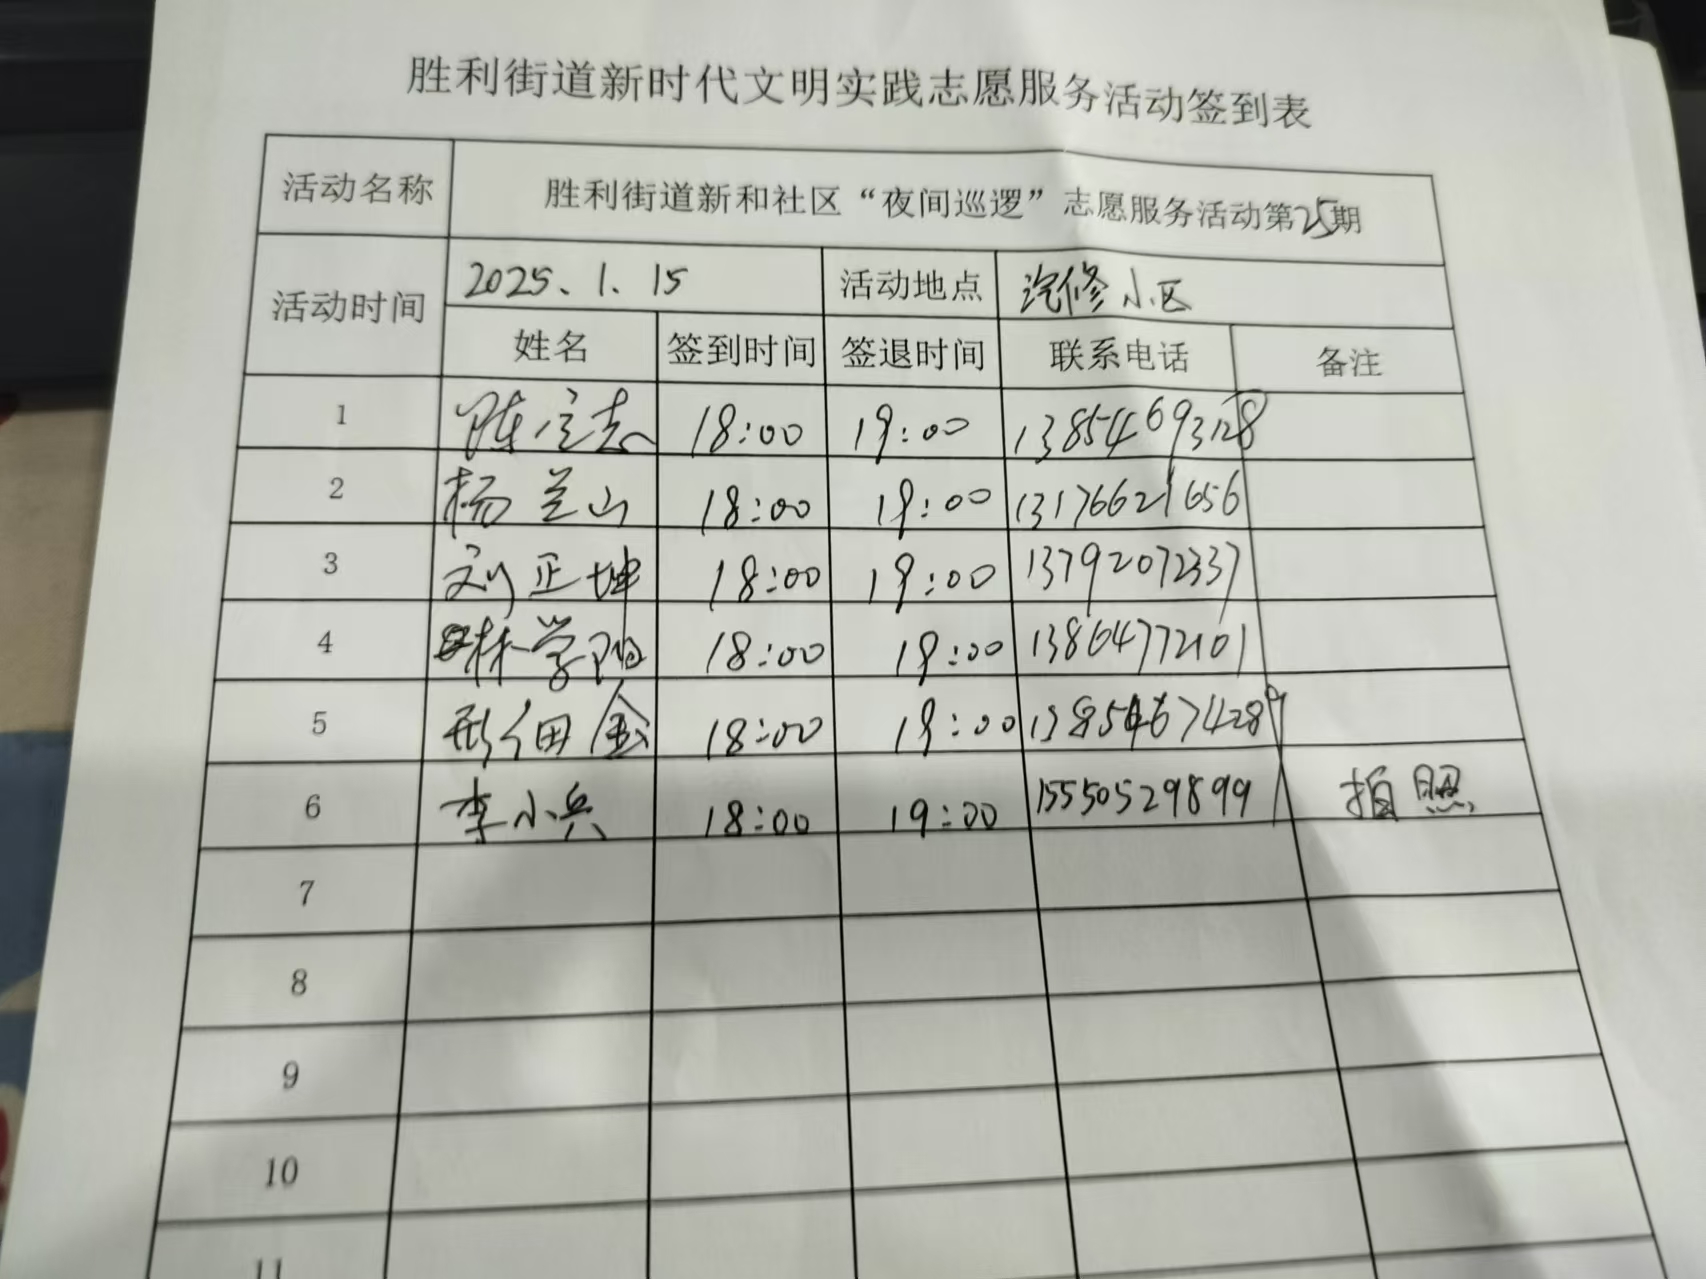 胜利街道新时代文明实践志愿服务活动签到表
活动名称 胜利街道新和社区“夜间巡逻”志愿服务活动第25期
活动时间 2025、1、15 活动地点 汽修小区
姓名 签到时间 签退时间 联系电话 备注
1 陈宝志 18:00 19:00 13854693128
2 杨兰山 18:00 19:00 13176621656
3 刘正坤 18:00 19:00 13792072337
4 林学阳 18:00 19:00 13864772101
5 邢佃金 18:00 19:00 13854674289
6 李小兵 18:00 19:00 15550529899 拍照
7
8
9
10
11